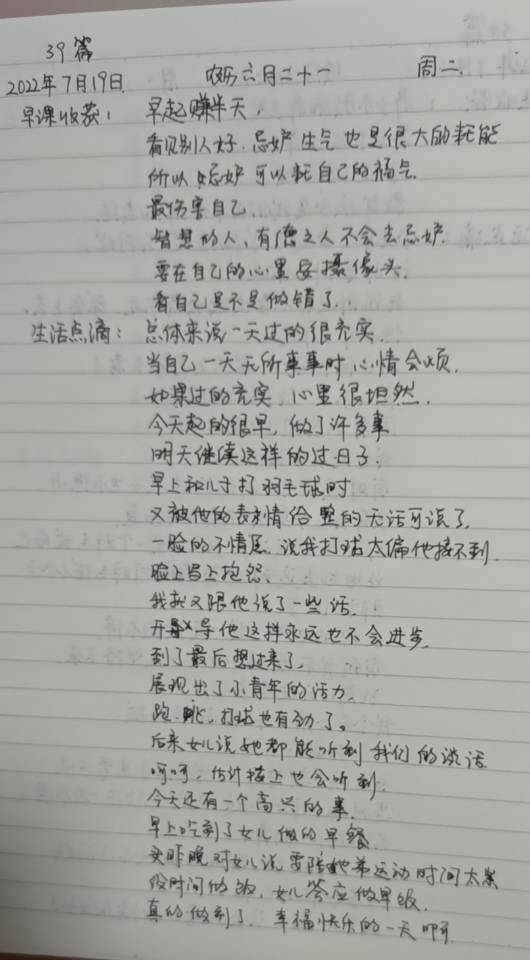 39篇
2022年7月19日. 农历六月二十一 周二.
早课收获: 早起赚半天,
看见别人好.忌妒生气也是很大的耗能
所以忌妒可以耗自己的福气.
最伤害自己.
智慧的人,有德之人不会去忌妒.
要在自己的心里安摄像头.
看自己是不是做错了.
生活点滴: 总体来说一天过的很充实.
当自己一天无所事事时,心情会烦.
如果过的充实、心里很坦然.
今天起的很早,做了许多事
明天继续这样的过日子.
早上和儿子打羽毛球时
又被他的表情给整的无话可说了
一脸的不情愿.说我打球太偏他接不到.
脸上写上抱怨.
我就又跟他说了一些话.
开导他这样永远也不会进步.
到了最后想过来了.
展现出了小青年的活力.
跑.跳.打球也有劲了。
后来女儿说她都能听到我们的谈话.
呵呵,估计楼上也会听到.
今天还有一个高兴的事.
早上吃到了女儿做的早餐
昨晚对女儿说要陪她弟运动时间太紧
没时间做饭,女儿答应做早饭.
真的做到了.幸福快乐的一天啊